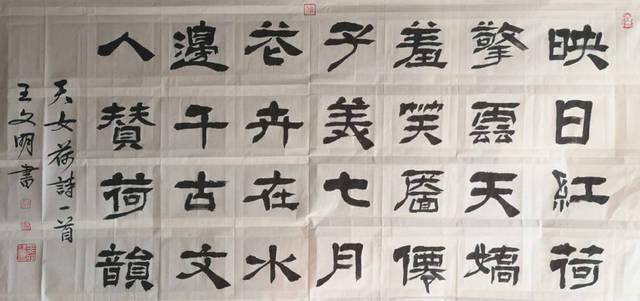 映日紅荷
擎雲天嬌
羞笑靨僊
子美七月
花卉在水
邊千古文
人賛荷韻
天女荷詩一首
王文明書